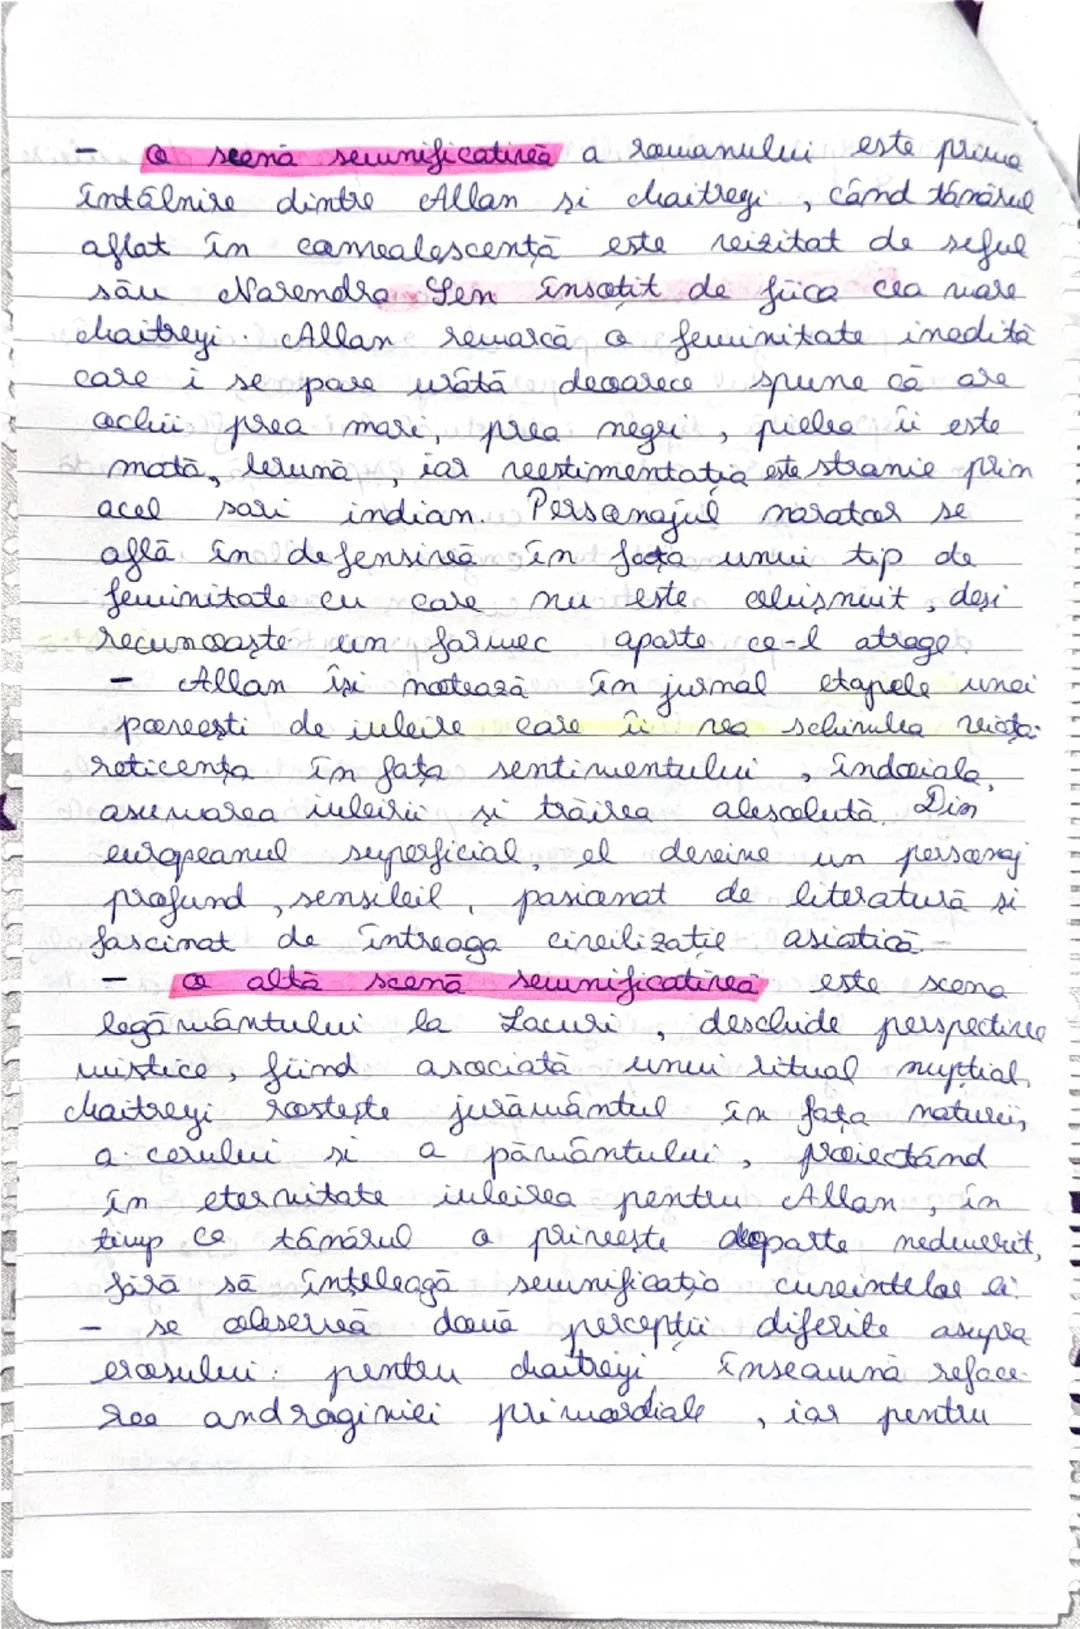 - O scenă semnificativă a romanului este prima
întâlnire dintre Allan și Maitreyi, când tânărul
aflat în convalescență este vizitat de șeful
său Narendra Sen însoțit de fiica cea mare
Maitreyi. Allan remarcă o feminitate inedită
care i se pare urâtă deoarece spune că are
ochii prea mari, prea negri, pielea îi este
mată, brună, iar vestimentația este stranie prin
acel sari indian. Personajul narator se
află în defensivă în fața unui tip de
feminitate cu care nu este obișnuit, deși
recunoaște un farmec aparte ce-l atrage.
- Allan își notează în jurnal etapele unei
povești de iubire care îi va schimba viața:
reticența în fața sentimentului, îndoiala,
asumarea iubirii și trăirea absolută. Din
europeanul superficial, el devine un personaj
profund, sensibil, pasionat de literatură și
fascinat de întreaga civilizație asiatică.
- O altă scenă semnificativă este scena
legământului la Lacuri, deschide perspective
mistice, fiind asociată unui ritual nupțial,
Maitreyi rostește jurământul în fața naturii,
a cerului și a pământului, proiectând
în eternitate iubirea pentru Allan, în
timp ce tânărul o privește departe nedumerit,
fără să înțeleagă semnificația cuvintelor ei.
- se observă două percepții diferite asupra
erosului: pentru Maitreyi înseamnă reface-
rea androginiei primordiale, iar pentru